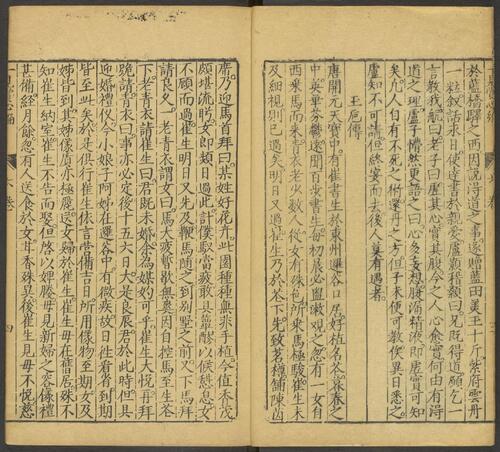 於藍橋驛之西因説得道之事遂贈藍田美玉十斤紫府雲丹
一粒叙話永日使達書於親愛盧顥稽顙曰兄既得道願乞一
言教我航曰老子曰虛其心實其腹今之人心愈實何由得
道之理盧子懵然更語之曰心多妄想腹漏精液即虛實可知
矣凡人自有不死之術還丹之方但子未便可教俟異日悉之
盧知不可請但終宴而去後人莫有遇者
玉巵傳
唐開元天寶中有崔書生於東州邏谷口居好植名花暮春之
中英蘂芬鬱遠聞百步書生每初晨必盥漱觀之忽有一女自
西乘馬而來青衣老少數人從女有殊色所乘馬極駿崔生未
及細視則已過矣明日又過崔生乃於花下先致茗樽鋪陳茵
席乃迎馬首拜曰某姓好花卉此園種種無非手植今值香茂
頗堪流眄女郎頻日過此計僕馭當疲敢具簞醪以俟憩息女
不顧而過崔生明日又先及鞭馬隨之到別墅之前又下馬拜
請良久一老青衣謂女曰馬大疲暫歇無爽因自控馬至生花
下老青衣請崔生曰君既未婚余為媒妁可乎崔生大悅再拜
跪請青衣曰事亦必定後十五六日大是良辰君於此時但具
迎婚禮儀今小娘子阿姊在邏谷中有微疾故日往看省到期
皆至此矣於是俱行崔生依言營備吉日所用儀物至期女及
姊皆到其姊儀質亦極麗送女歸於崔生崔生母在舊居殊不
知崔生納室崔生不告而娶但啓以婢媵母見新婦之容儀禮
甚備經月餘忽有人送食於女甘香殊異後崔生見母不悅慈
四